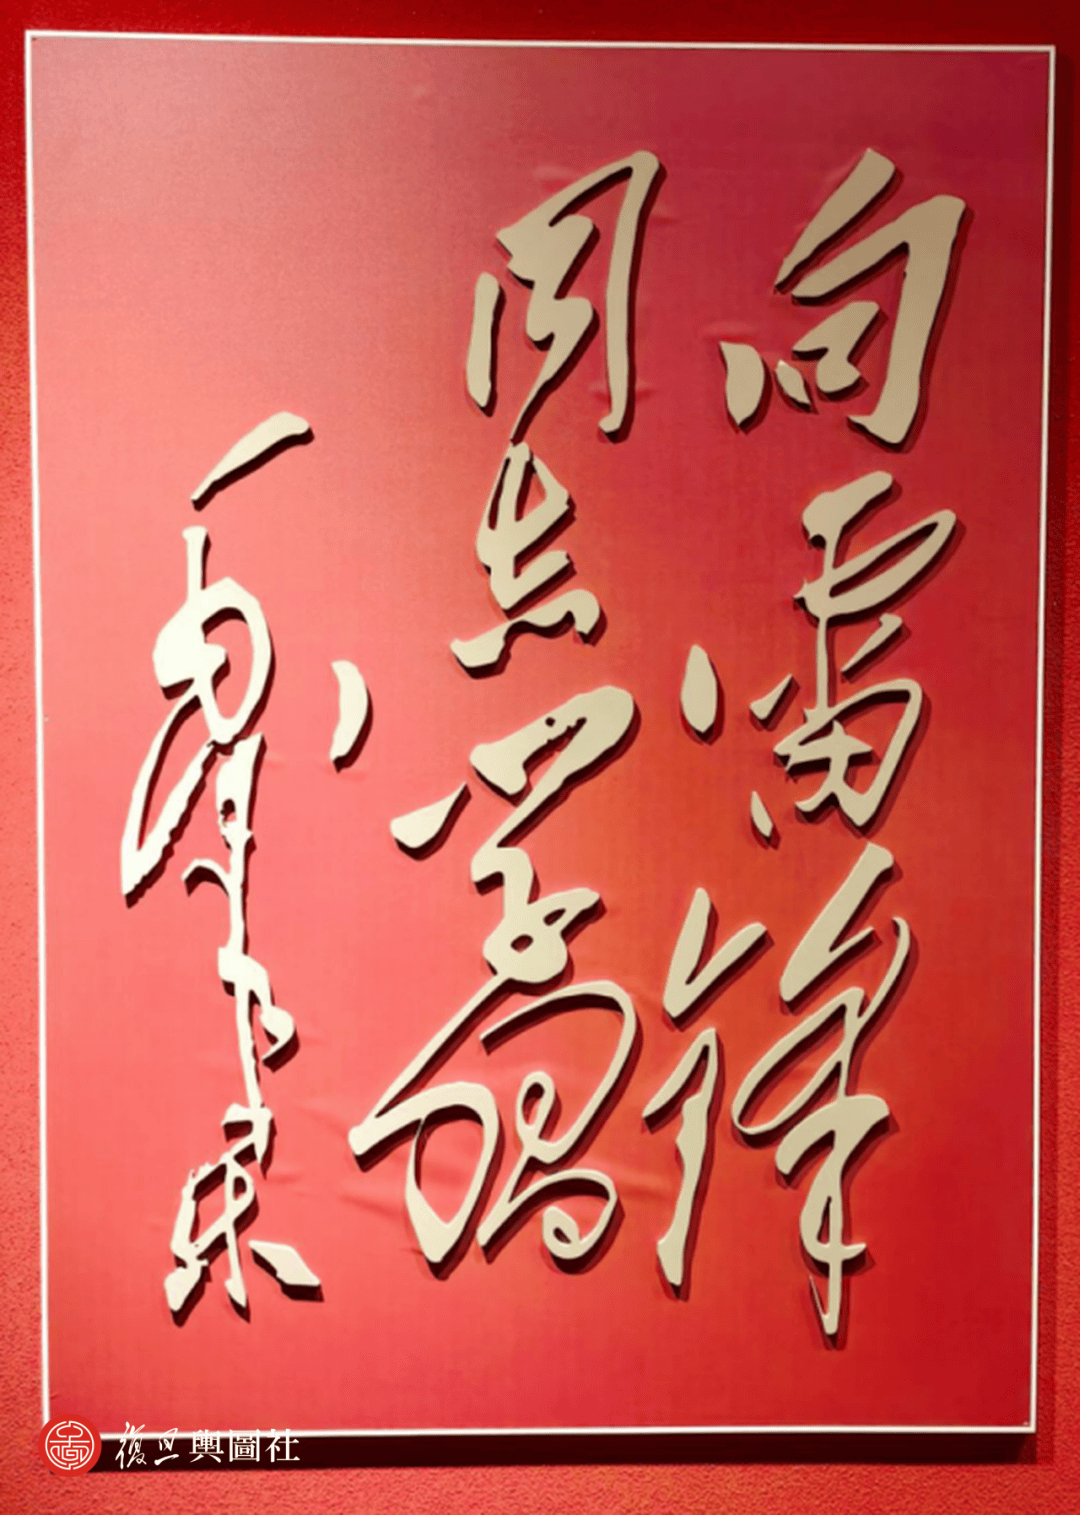 向雷锋
同志学习
毛泽东
復旦輿圖社